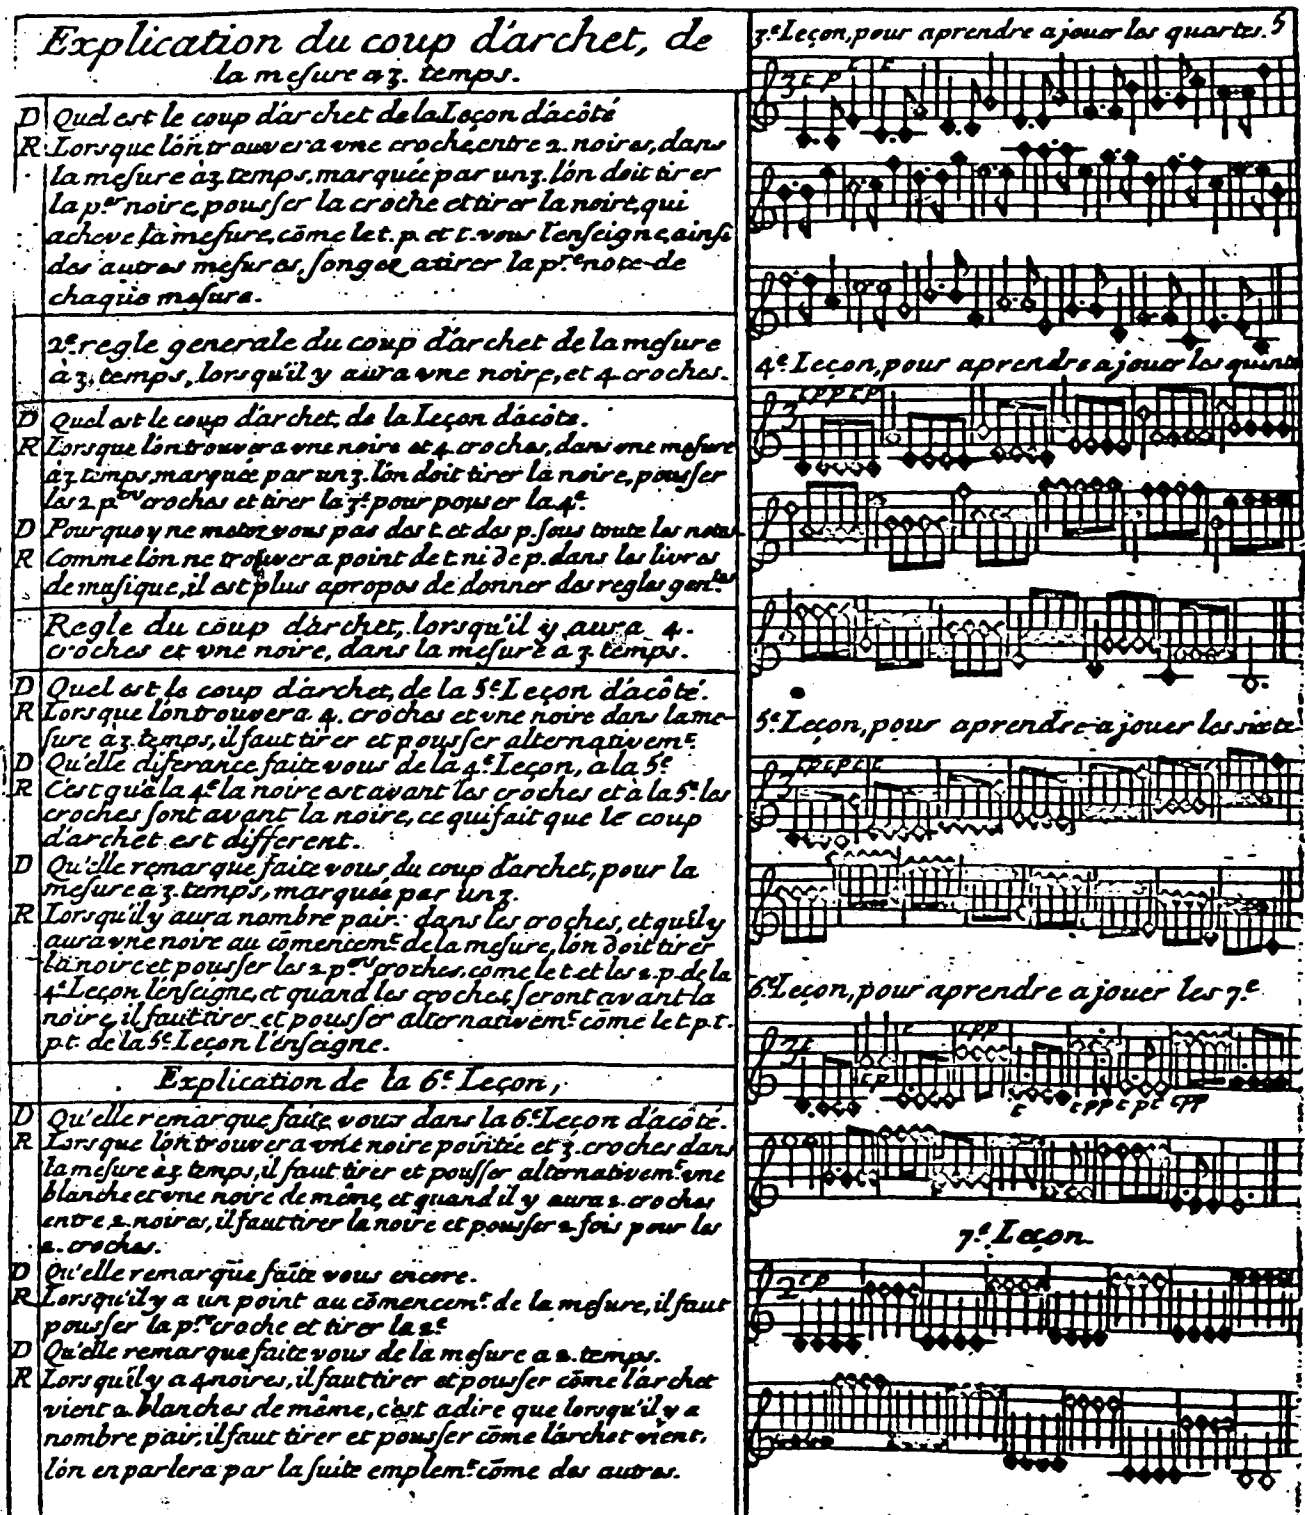 Explication du coup d'archet, de
la mesure a 3. temps.
D Quel est le coup d'archet de la Leçon d'acôté
R Lorsque l'on trouvera vne croche, entre 2. noires, dans
la mesure à 3. temps, marquée par un 3. l'on doit tirer
la p.er noire, pousser la croche et tirer la noire, qui
acheve la mesure, cōme le t. p. et t. vous l'enseigne, ainsi
des autres mesures, songez a tirer la p.re note de
chaque mesure.
2.e regle generale du coup d'archet de la mesure
à 3. temps, lorsqu'il y aura vne noire, et 4 croches.
D Quel est le coup d'archet, de la Leçon d'acôte.
R Lorsque l'on trouvera vne noire et 4. croches, dans vne mesure
à 3 temps marquée par un 3. l'on doit tirer la noire, pousser
les 2 p. croches et tirer la 3.e pour pousser la 4.e
D Pourquoy ne metez vous pas des t. et des p. sous toute les notes
R Comme l'on ne trouvera point de t. ni de p. dans les livres
de musique, il est plus apropos de donner des regles gen.les
Regle du coup d'archet, lorsqu'il y aura 4.
croches et vne noire, dans la mesure a 3 temps.
D Quel est le coup d'archet, de la 5.e Leçon d'acôté.
R Lors que l'on trouvera 4. croches et vne noire dans la me-
sure à 3. temps, il faut tirer et pousser alternativem.t
D Qu'elle diferance faite vous de la 4.e Leçon, à la 5.e
R C'est qu'à la 4.e la noire est avant les croches et à la 5.e les
croches sont avant la noire, ce qui fait que le coup
d'archet est different.
D Qu'elle remarque faite vous du coup d'archet, pour la
mesure a 3 temps, marquée par un 3.
R Lorsqu'il y aura nombre pair dans les croches, et qu'il y
aura vne noire au cōmencem.t de la mesure, l'on doit tirer
la noire et pousser les 2 p. croches, come le t. et les 2. p. de la
4.e Leçon l'enseigne, et quand les croches seront avant la
noire, il faut tirer et pousser alternativem.t cōme le t. p. t.
p. t. de la 5.e Leçon l'enseigne.
Explication de la 6.e Leçon,
D Qu'elle remarque faite vous dans la 6.e Leçon d'acôté.
R Lorsque l'on trouvera vne noire pointée et 3. croches dans
la mesure à 3 temps, il faut tirer et pousser alternativem.t vne
blanche et vne noire de même, et quand il y aura 2. croches
entre 2. noires, il faut tirer la noire et pousser 2 fois pour les
2. croches.
D Qu'elle remarque faite vous encore.
R Lorsqu'il y a un point au cōmencem.t de la mesure, il faut
pousser la p.re croche et tirer la 2.e
D Qu'elle remarque faite vous de la mesure a 2. temps.
R Lors qu'il y a 4 noires, il faut tirer et pousser cōme l'archet
vient 2. blanches de même, c'est adire que lorsqu'il y a
nombre pair, il faut tirer et pousser cōme l'archet vient,
l'on en parlera par la suite emplem.t cōme des autres.
3.e Leçon, pour aprendre a jouer les quartes. 5
3 t p t t
4.e Leçon, pour aprendre a jouer les quinte
3 t p p t p
5.e Leçon, pour aprendre a jouer les sixte
3 t p t p t t
6.e Leçon, pour aprendre a jouer les 7.e
3 t t t p p
t p t t p p t p t t p p
7.e Leçon
2 t p